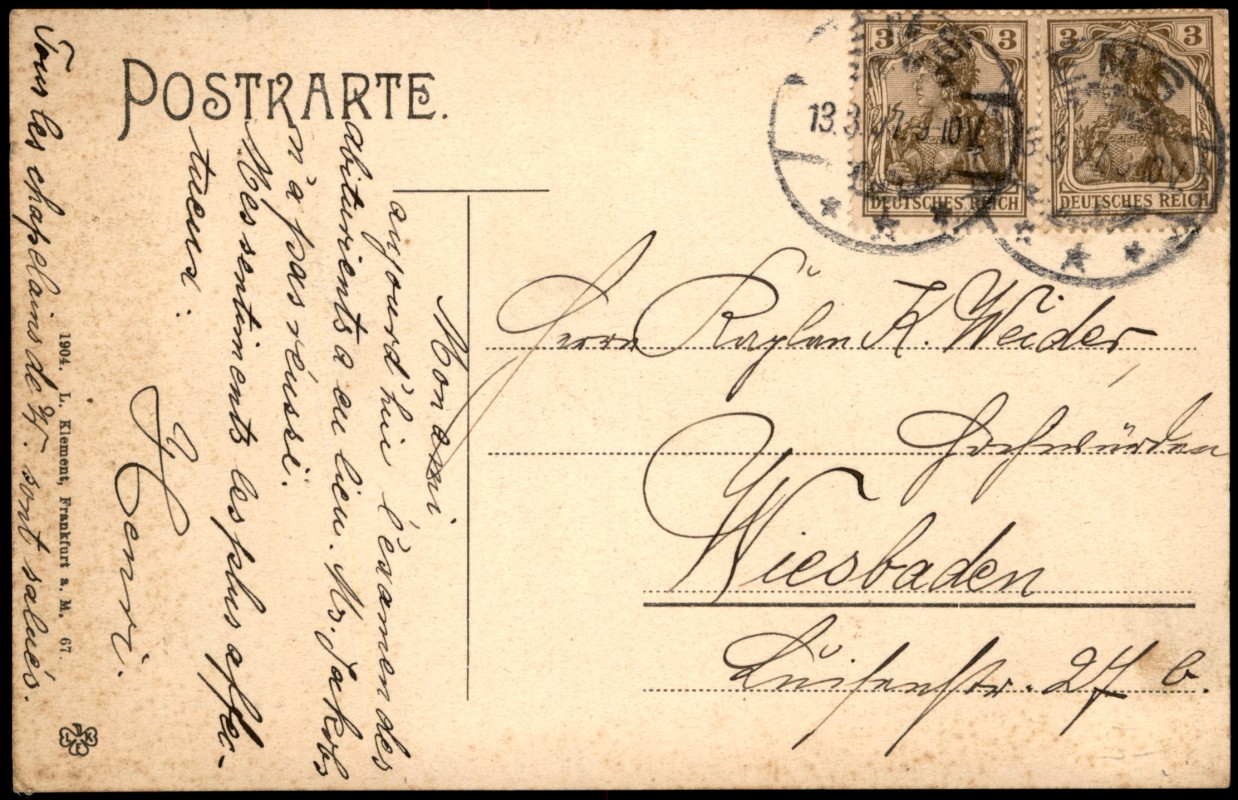 POSTKARTE.
3 3
3 3
DEUTSCHES REICH
DEUTSCHES REICH
13.3.07. 9-10V.
Herrn Kaplan K. Weider,
Hochwürden
Wiesbaden
Luisenstr. 27 b.
Mon ami
aujourd'hui l'examen des
abiturients a eu lieu. Mr. Jakobs
n'a pas réussi.
Mes sentiments les plus affec-
tueux:
Henri.
1904. L. Klement, Frankfurt a. M. 67.
Tous les chapelains de W. sont salués.